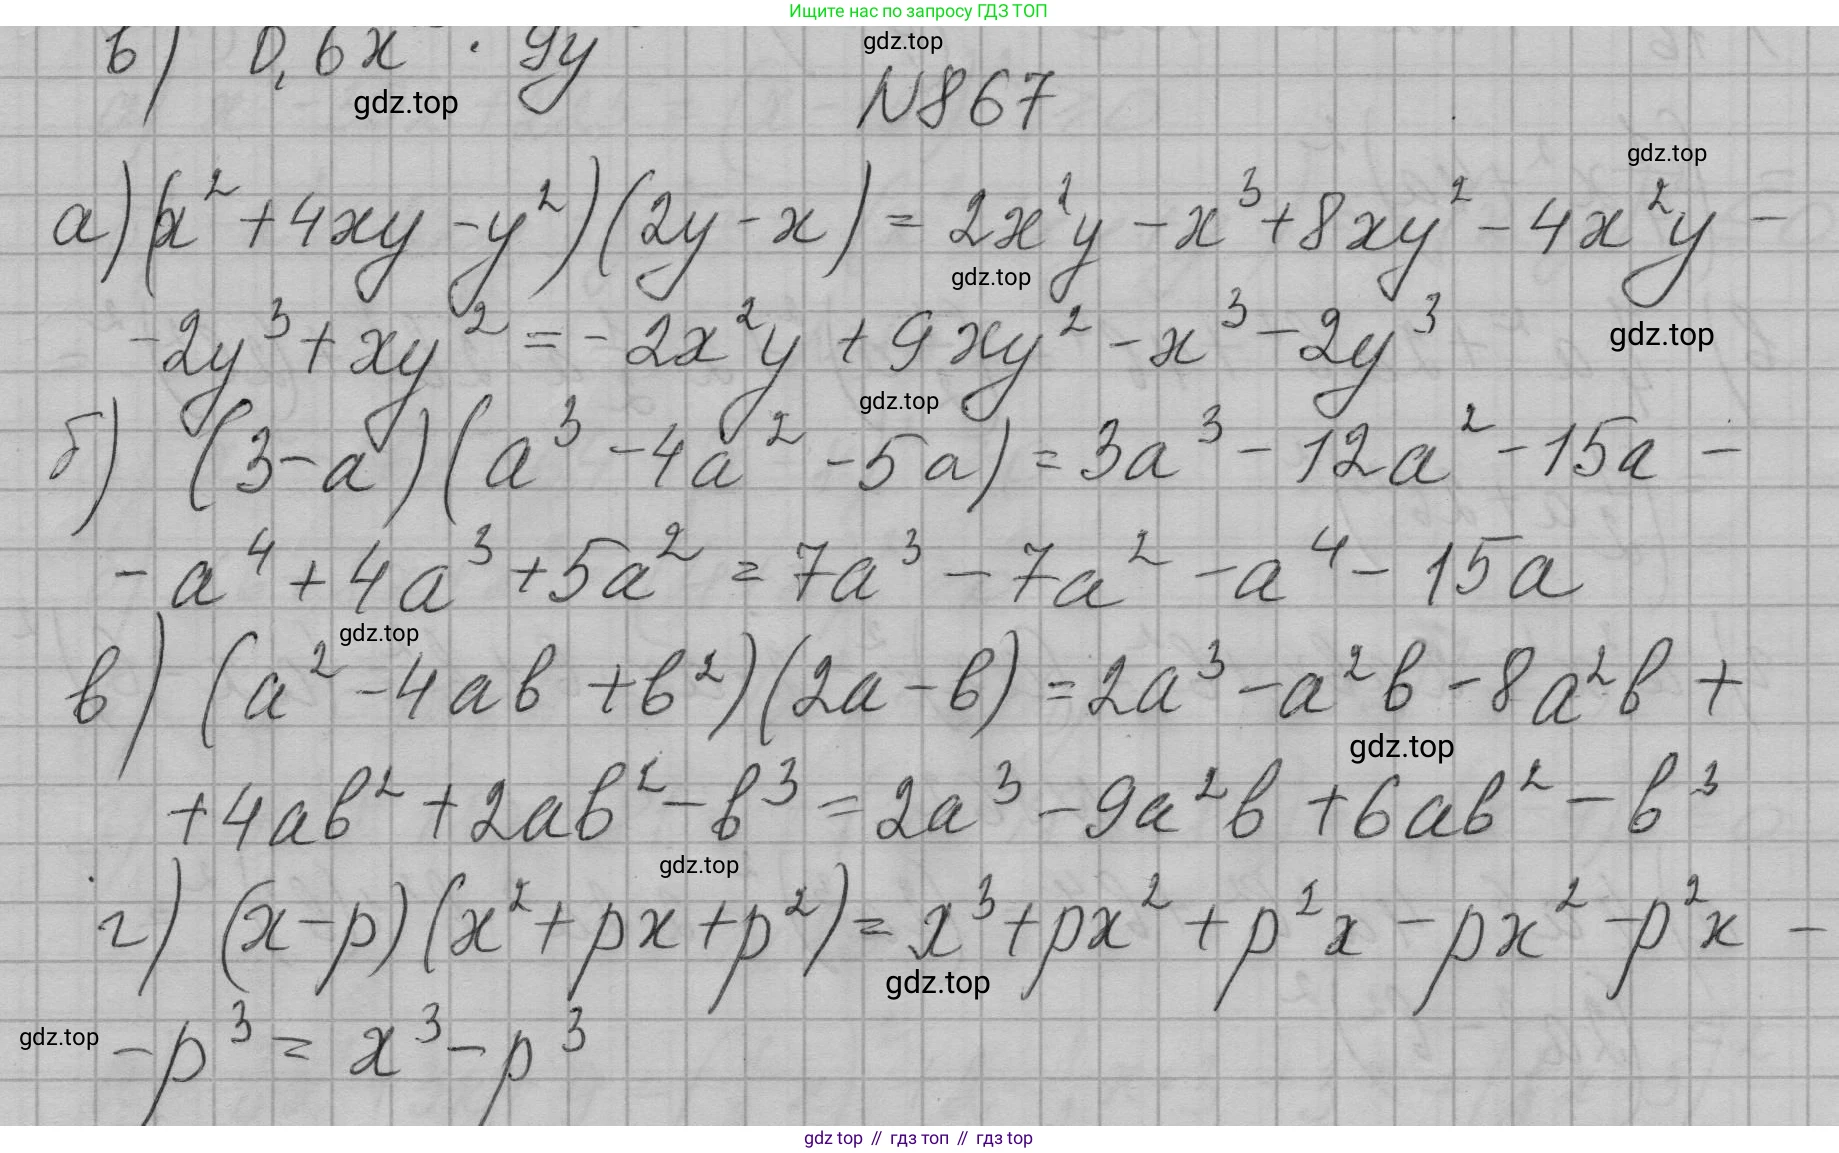 Ищите нас по запросу ГДЗ ТОП
в) 0,6x · 9y
gdz.top
gdz.top
N867
gdz.top
а) (x² + 4xy - y²)(2y - x) = 2x²y - x³ + 8xy² - 4x²y -
gdz.top
- 2y³ + xy² = - 2x²y + 9xy² - x³ - 2y³
gdz.top
gdz.top
б) (3 - a)(a³ - 4a² - 5a) = 3a³ - 12a² - 15a -
- a⁴ + 4a³ + 5a² = 7a³ - 7a² - a⁴ - 15a
gdz.top
в) (a² - 4ab + b²)(2a - b) = 2a³ - a²b - 8a²b +
gdz.top
+ 4ab² + 2ab² - b³ = 2a³ - 9a²b + 6ab² - b³
gdz.top
г) (x - p)(x² + px + p²) = x³ + px² + p²x - px² - p²x -
gdz.top
gdz.top
- p³ = x³ - p³
gdz top // гдз топ // гдз top